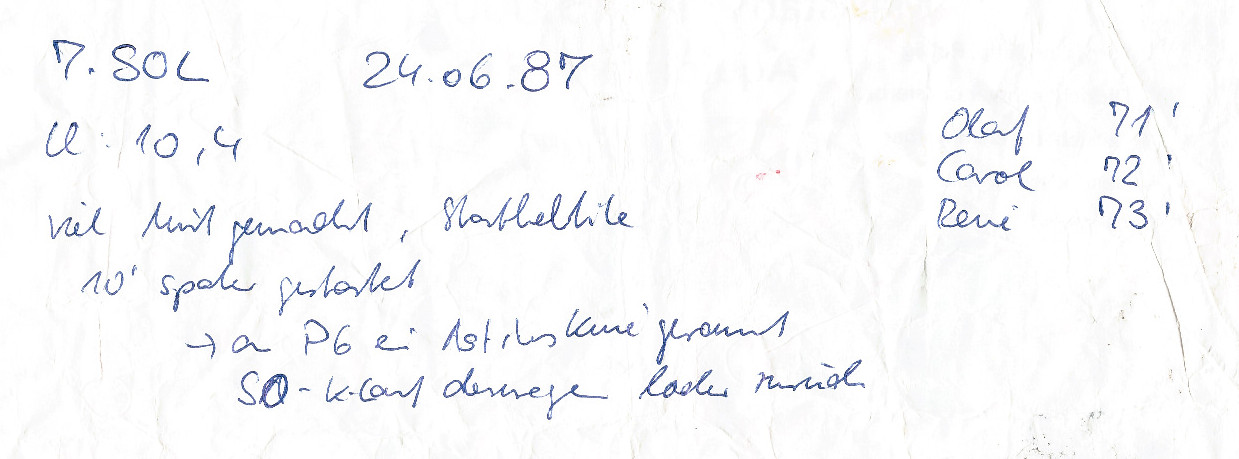 7. SOL 24.06.87
Ü: 10,4
viel Mist gemacht,
10' später gestartet
→ an P6 ein Ast ins Knie gerammt
SO-K-Lauf deswegen zurück
Olaf 71'
Carol 72'
René 73'